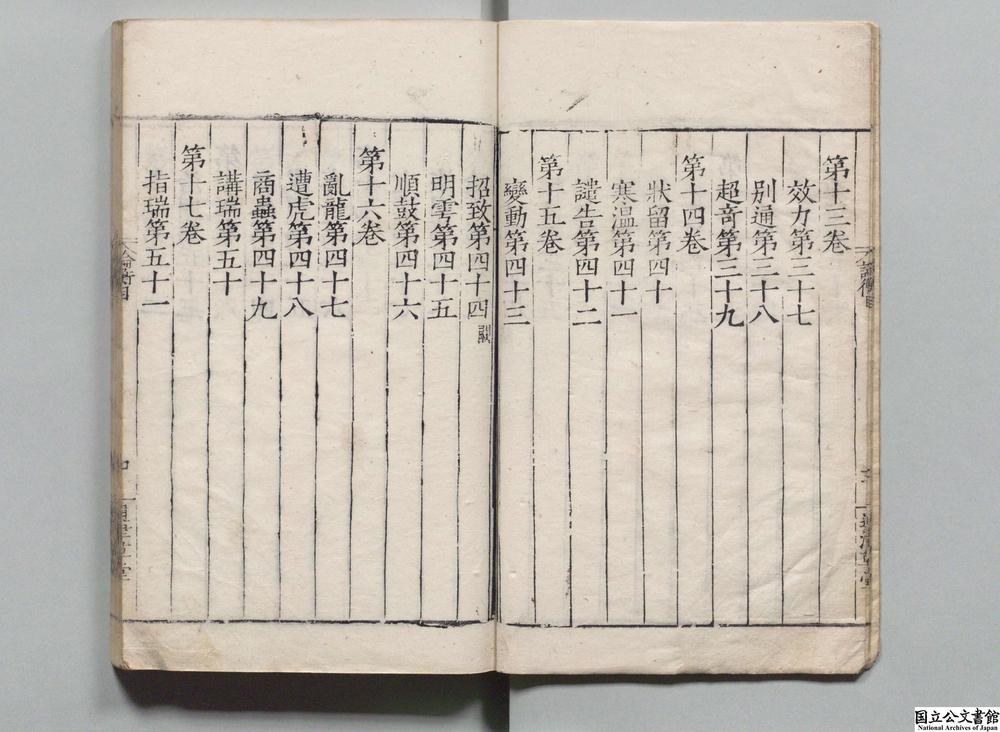 第十三卷
效力第三十七
別通第三十八
超竒第三十九
第十四卷
狀留第四十
寒溫第四十一
譴告第四十二
第十五卷
變動第四十三
招致第四十四 闕
明雩第四十五
順鼓第四十六
第十六卷
亂龍第四十七
遭虎第四十八
商蟲第四十九
講瑞第五十
第十七卷
指瑞第五十一
論衡目
通津草堂
国立公文書館
National Archives of Japan